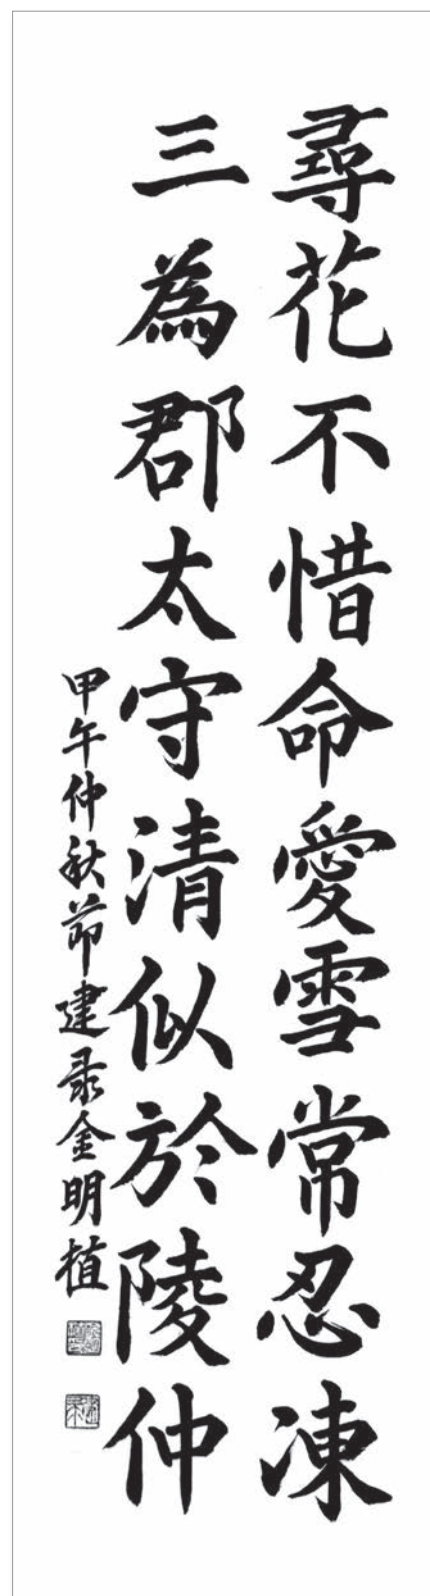 尋花不惜命愛雪常忍凍
三為郡太守清似於陵仲
甲午仲秋節建金明植